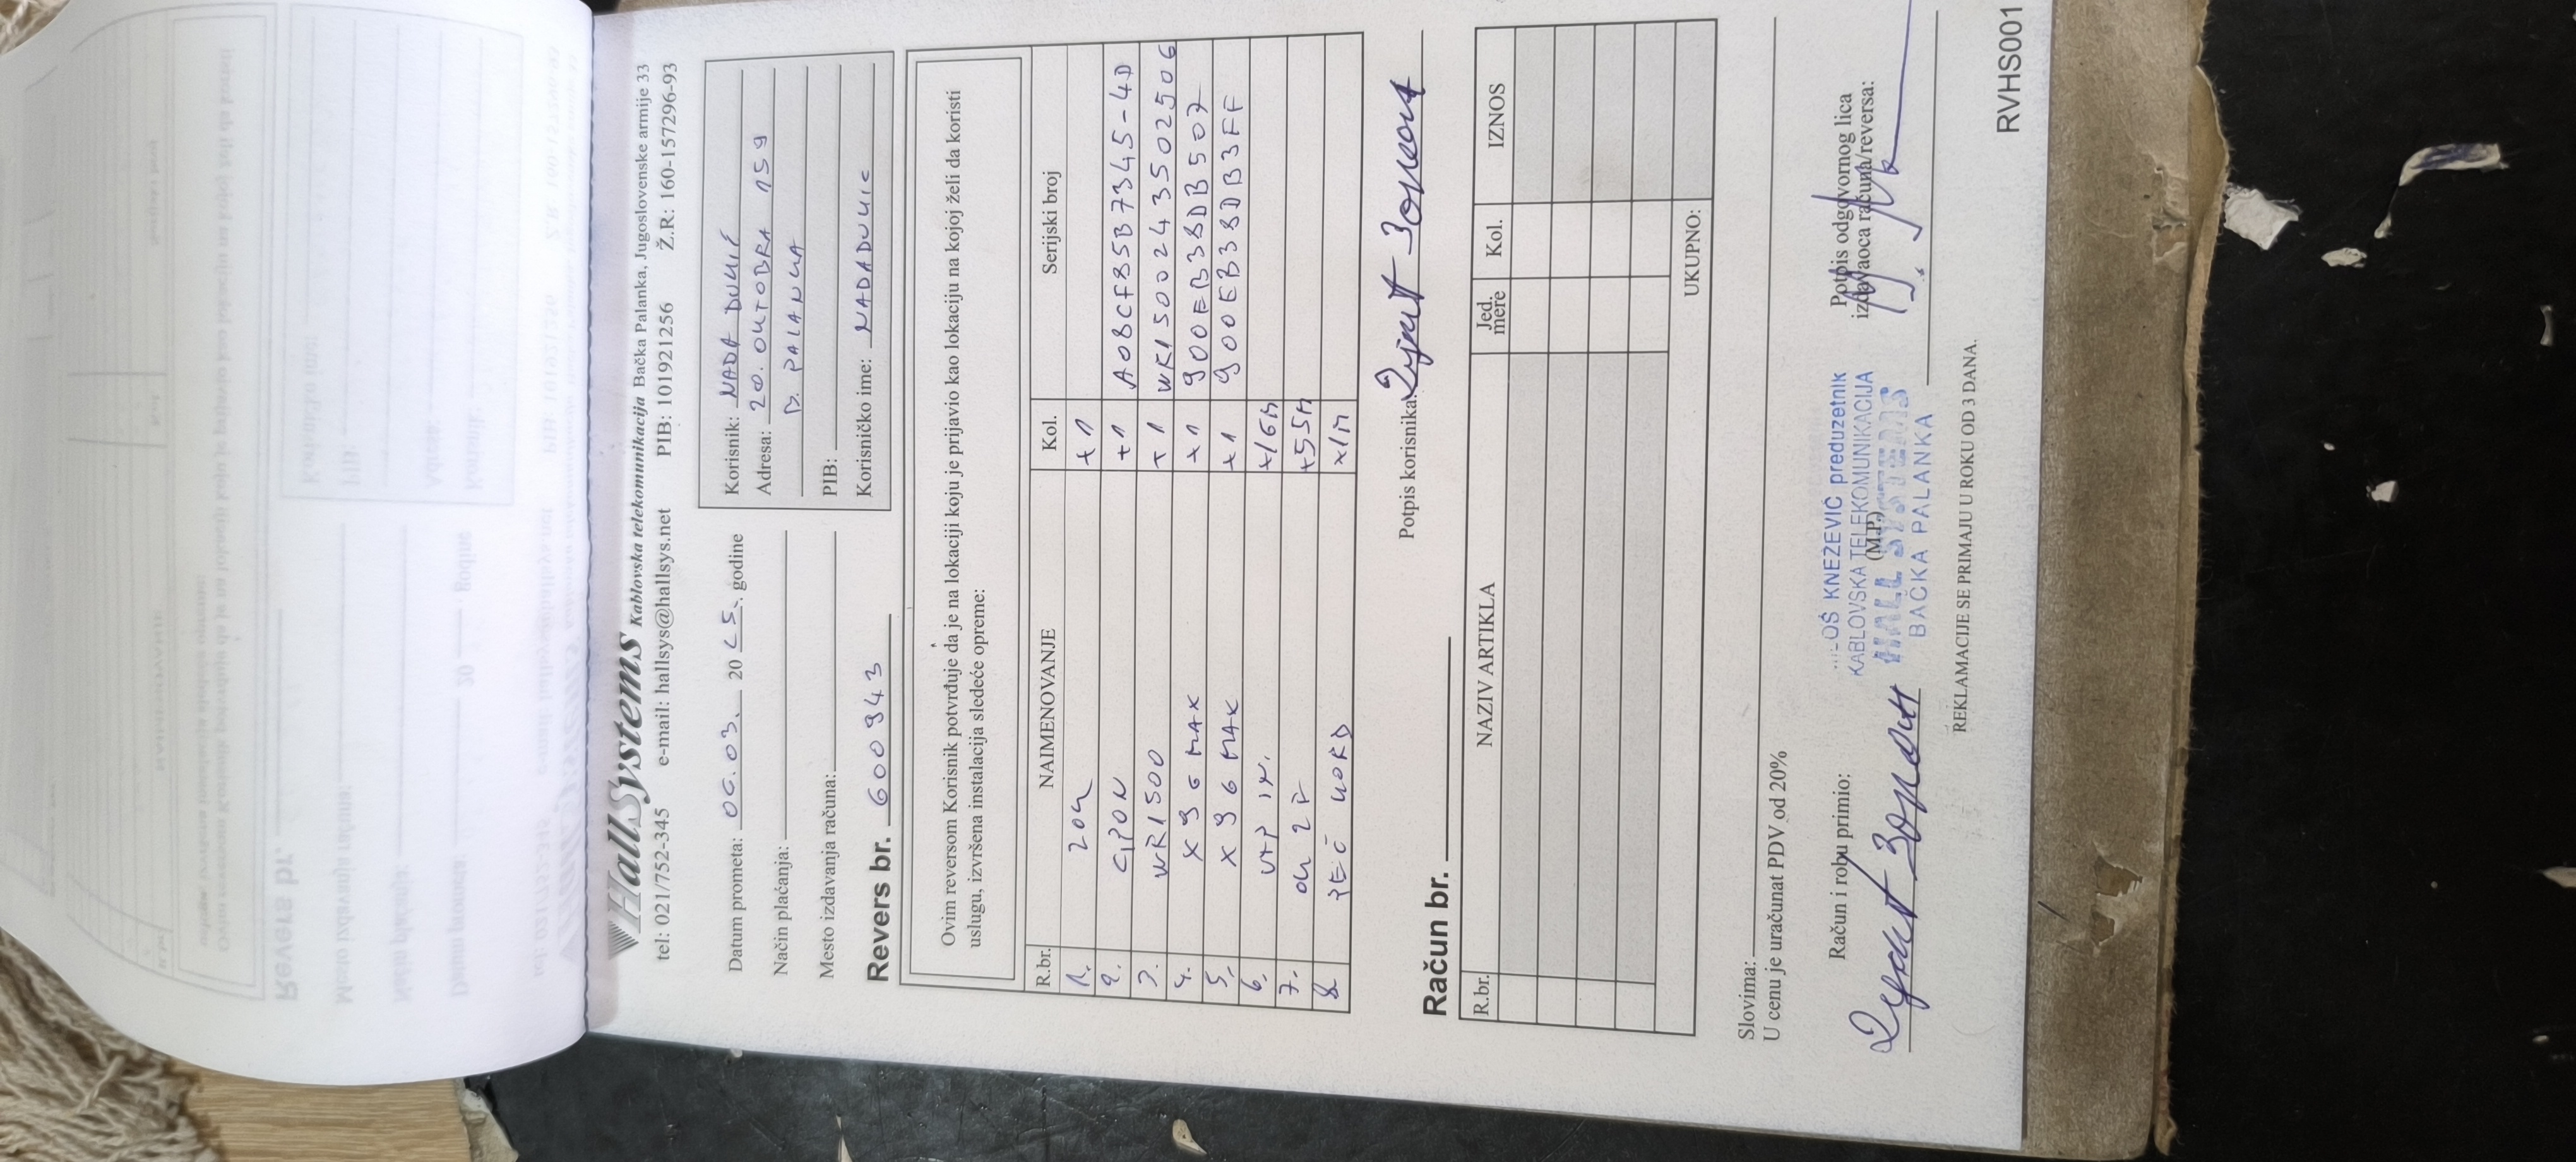 HallSystems Kablovska telekomunikacija Bačka Palanka, Jugoslovenske armije 33
tel: 021/752-345 e-mail: hallsys@hallsys.net PIB: 101921256 Ž.R: 160-157296-93
Datum prometa: 06.03. 2025. godine
Način plaćanja:
Mesto izdavanja računa:
Korisnik: NADA
Adresa: 20. OKTOBRA 159
B. PALANKA
PIB:
Korisničko ime:
Revers br. 600943
Ovim reversom Korisnik potvrđuje da je na lokaciji koju je prijavio kao lokaciju na kojoj želi da koristi
uslugu, izvršena instalacija sledeće opreme:
R.br. NAIMENOVANJE Kol. Serijski broj
1. ×1
2. GPON ×1 A08CF85B7345-4D
3. WR1500 ×1 WR15002435502506
4. X96 MAX ×1 900EB38DB507
5. X96 MAX ×1 900EB38DB3FF
6. UTP
7. OK 2F
8. PEČ KORD
Potpis korisnika:
Račun br.
R.br. NAZIV ARTIKLA Jed mere Kol. IZNOS
UKUPNO:
Slovima:
U cenu je uračunat PDV od 20%
Račun i robu primio:
(M.P.)
Potpis odgovornog lica
izdavaoca računa/reversa:
MILOŠ KNEZEVIĆ preduzetnik
KABLOVSKA TELEKOMUNIKACIJA
HALL SYSTEMS
BAČKA PALANKA
REKLAMACIJE SE PRIMAJU U ROKU OD 3 DANA.
RVHS001